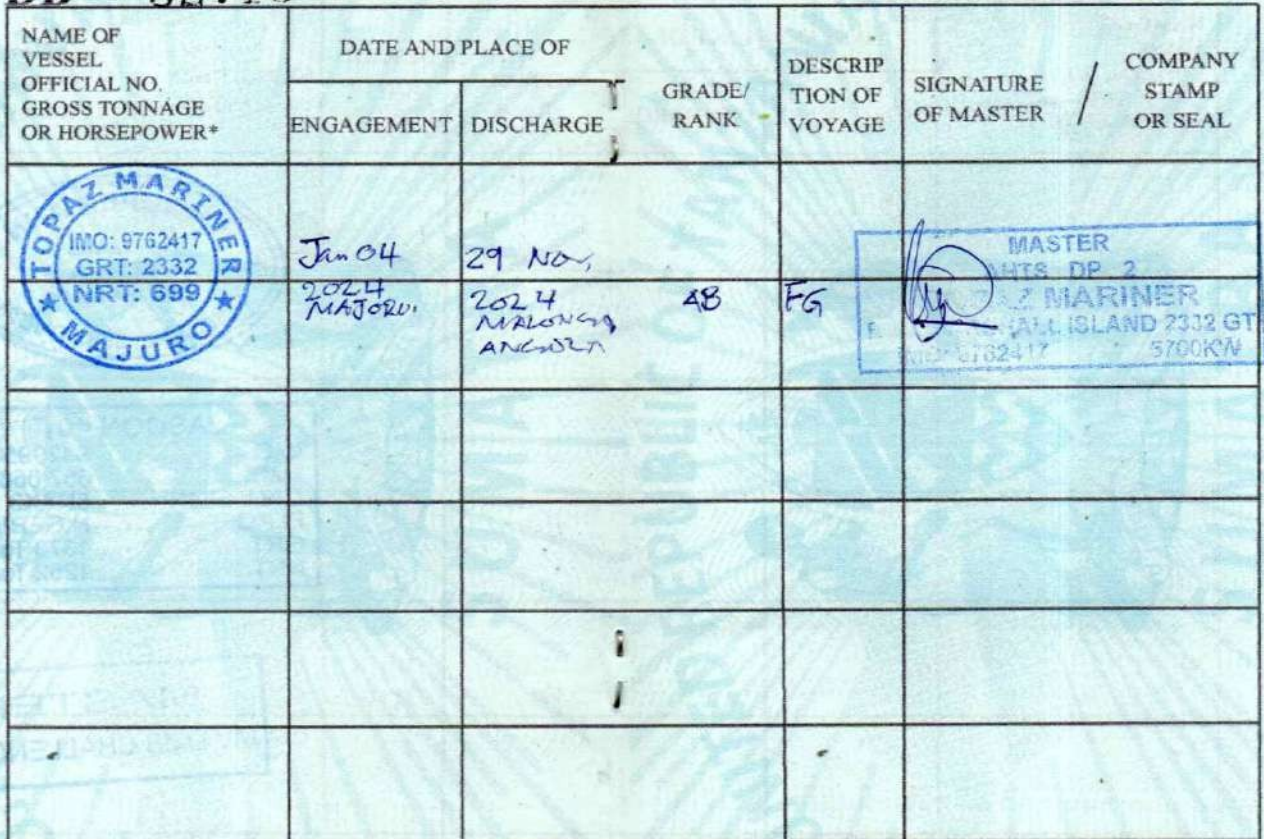 NAME OF
VESSEL
OFFICIAL NO.
GROSS TONNAGE
OR HORSEPOWER*
DATE AND PLACE OF
ENGAGEMENT
DISCHARGE
GRADE/
RANK
DESCRIP
TION OF
VOYAGE
SIGNATURE
OF MASTER
/
COMPANY
STAMP
OR SEAL
TOPAZ MARINER
IMO: 9762417
GRT: 2332
NRT: 699
★ MAJURO ★
Jan 04
2024
MAJORU.
29 Nov,
2024
MALONGA
ANGOLA
AB
FG
MASTER
AHTS DP 2
MARINER
ISLAND 2332 GT
IMO: 9762417 5700KW
UNITED REPUBLIC OF TANZANIA